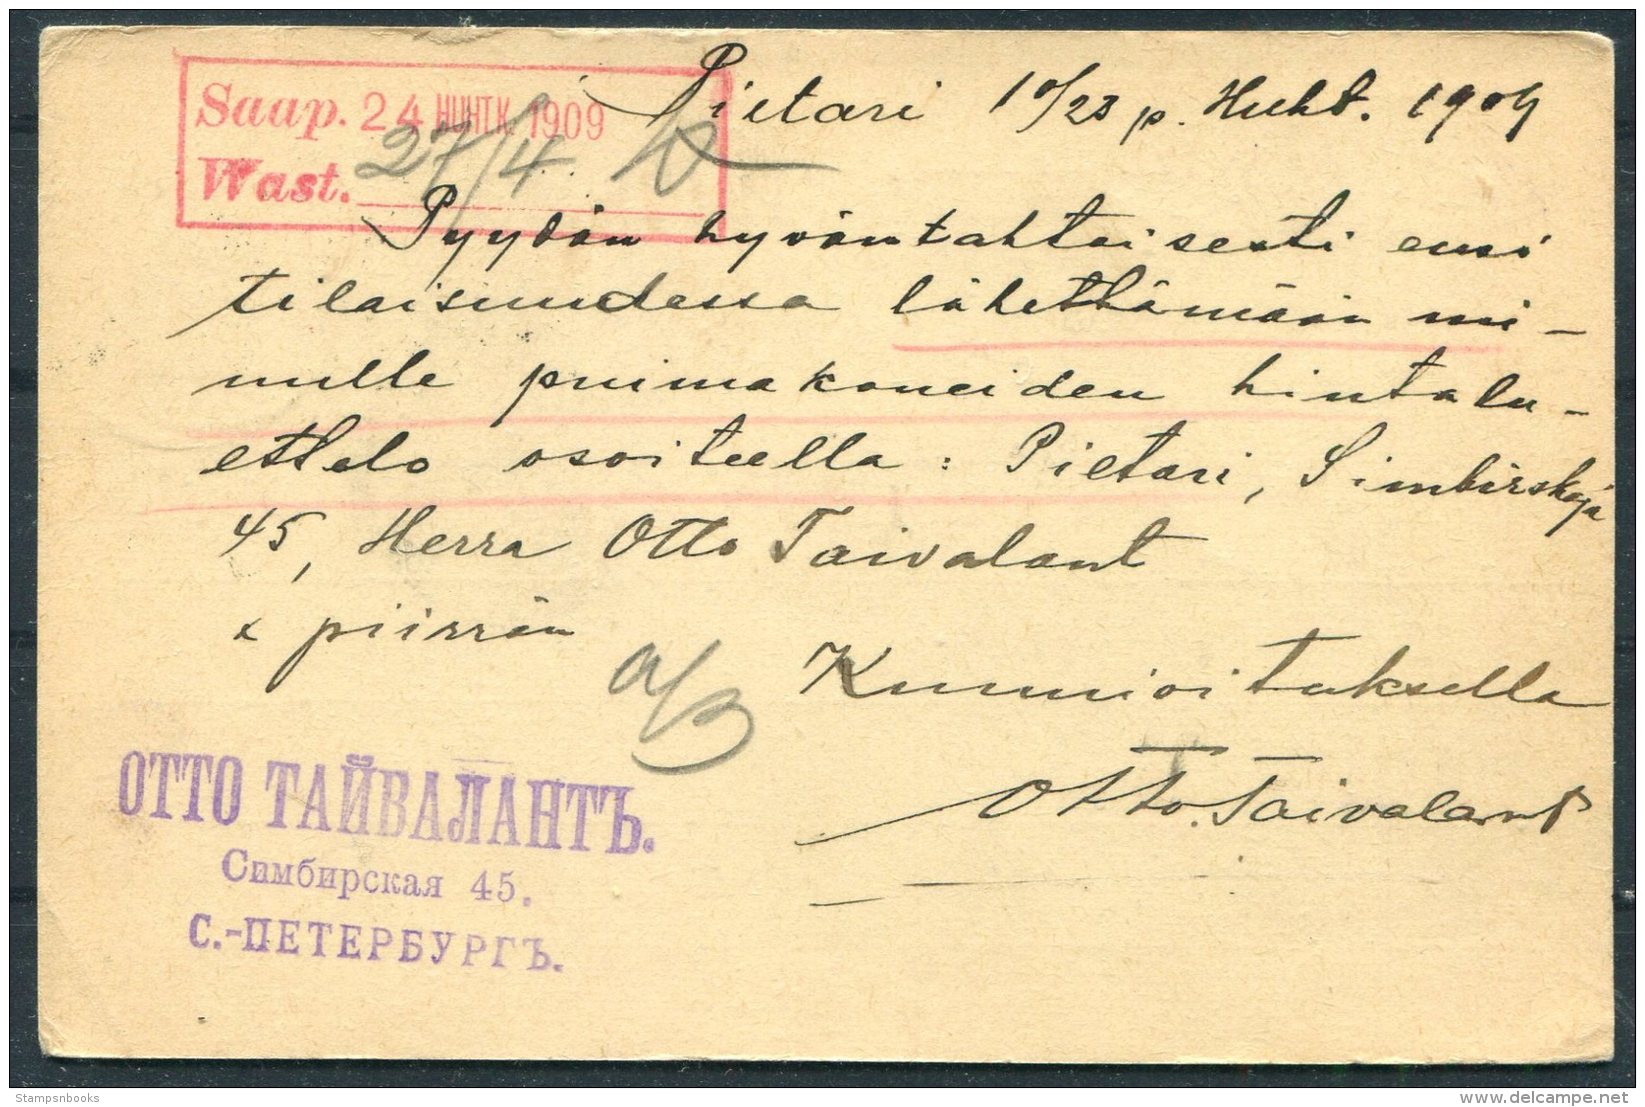 Saap. 24 HUHTK. 1909
Wast. 27/4
Pietari 10/23 p. Huht. 1909
Pyydän hyväntahtoisesti ensi
tilaisuudessa lähettämään mi-
nulle puimakoneiden hintalu-
ettelo osoiteella: Pietari, Simbirskaja
45, Herra Otto Taivalant
x piirrän
Kunnioituksella
Otto Taivalant
ОТТО ТАЙВАЛАНТЪ.
Симбирская 45.
С.-ПЕТЕРБУРГЪ.
Stampsnbooks
delcampe.net